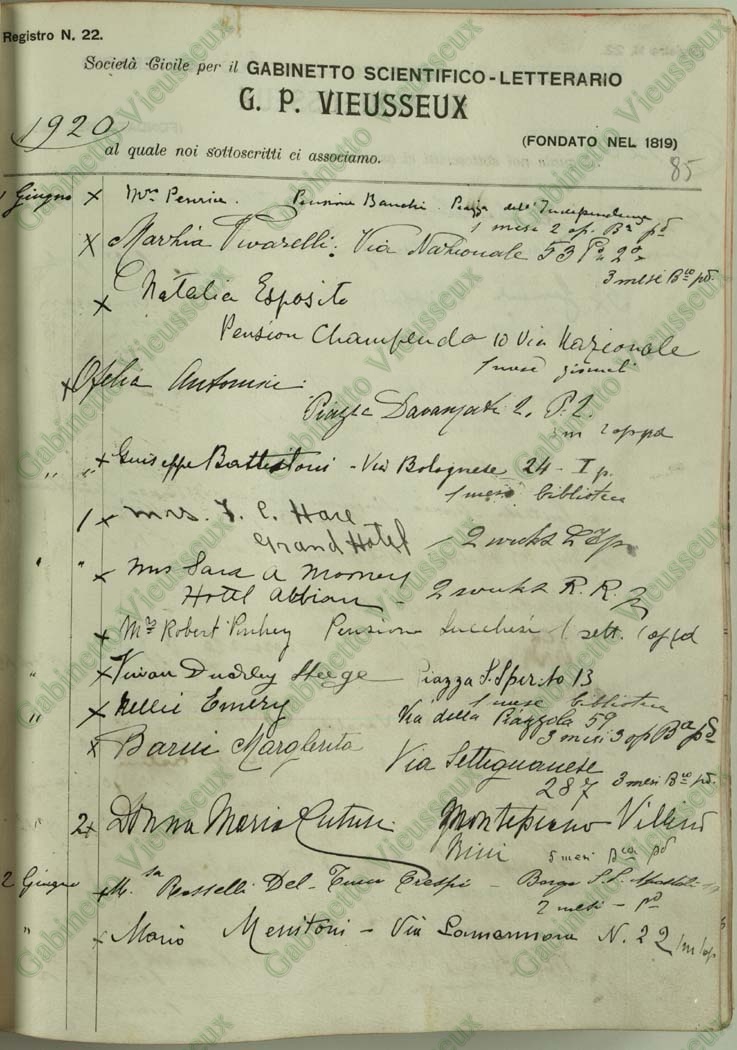 Registro N. 22.
Società Civile per il GABINETTO SCIENTIFICO-LETTERARIO
G. P. VIEUSSEUX
(FONDATO NEL 1819)
1920
al quale noi sottoscritti ci associamo.
85
1 Giugno x Mrs Penrice. Pensione Banchi. Piazza dell'Indipendenza
1 mesi 2 op. Ba pd
x Marzia Pivarelli. Via Nazionale 53 Po 2o
3 mesi Bca pd.
x Natalia Esposito
Pension Champendo 10 Via Nazionale
1 mese giornali
x Ofelia Antonini.
Piazza Davanzati 2. P. 2.
1 m 2 op pd
" " x Giuseppe Battistoni - Via Bolognese 24 - I p.
1 mese biblioteca
1 x Mrs. F. C. Hall
Grand Hotel - 2 weeks
" " x Mrs Sara A Morney
Hotel Albion - 2 weeks R. R.
x Mr Robert Pinhey Pensione Lucchesi 1 sett. 1 op pd
" x Vivian Dudley Steege Piazza S. Spirito 13
1 mese biblioteca
" x Nellie Emery Via della Piazzola 59
3 mesi 3 op Ba pd
x Barni Margherita Via Settignanese
287 3 mesi Bca pd.
2 x Donna Maria Montepiano Villino
Nini 5 mesi Bca pd
2 Giugno x M.sa Rosselli Del-Turco Crespi - Borgo S.S. Apostoli
2 mesi - pd
" x Mario Menitoni - Via Lamarmora N. 22 1 m 1 op